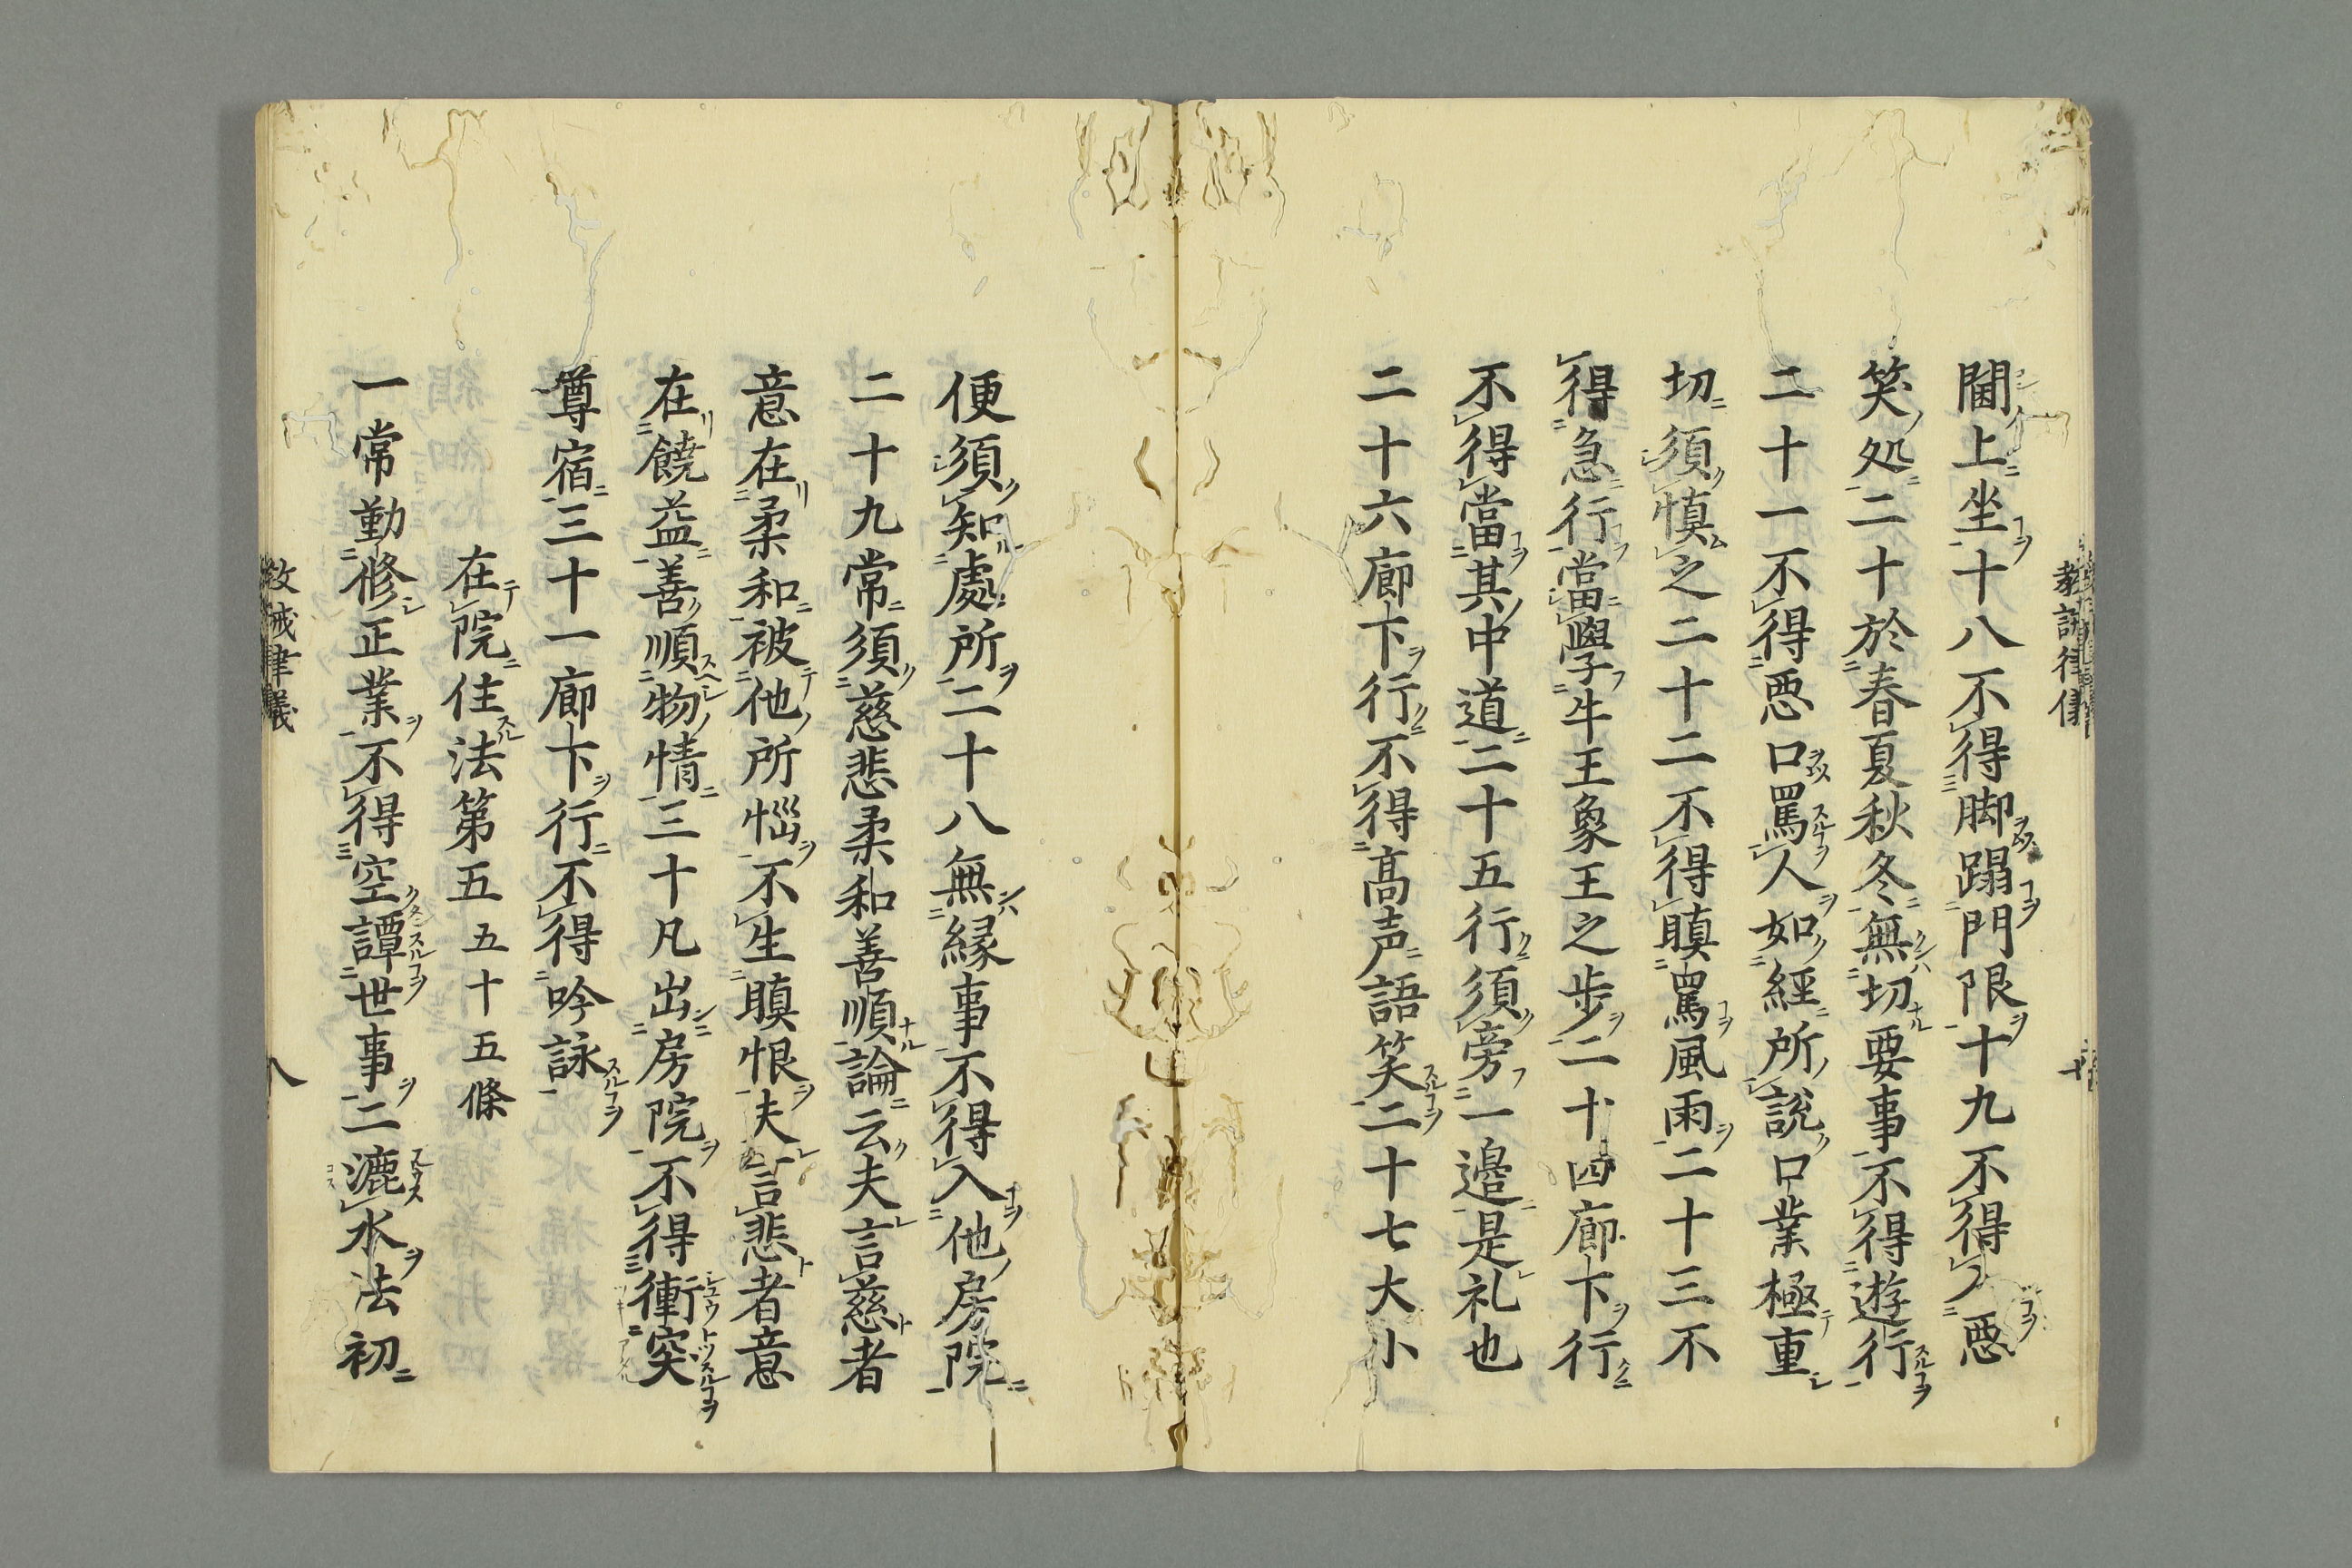 閫上坐十八不得脚蹋門限十九不得入惡
笑処二十於春夏秋冬無切要事不得遊行
二十一不得惡口罵人如經所說口業極重
切須慎之二十二不得瞋罵風雨二十三不
得急行當學牛王象王之步二十四廊下行
不得當其中道二十五行須旁一邊是礼也
二十六廊下行不得高声語笑二十七大小
便須知處所二十八無縁事不得入他房院
二十九常須慈悲柔和善順論云夫言慈者
意在柔和被他所惱不生瞋恨夫言悲者意
在饒益善順物情三十凡出房院不得衝突
尊宿三十一廊下行不得吟詠
在院住法第五 五十五條
一常勤修正業不得空譚世事二漉水法初
教誡律儀
八